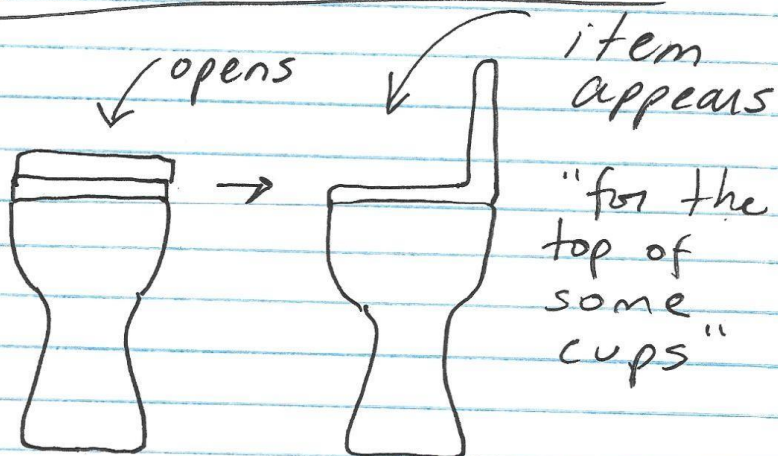 opens
item
appears
"for the
top of
some
cups"